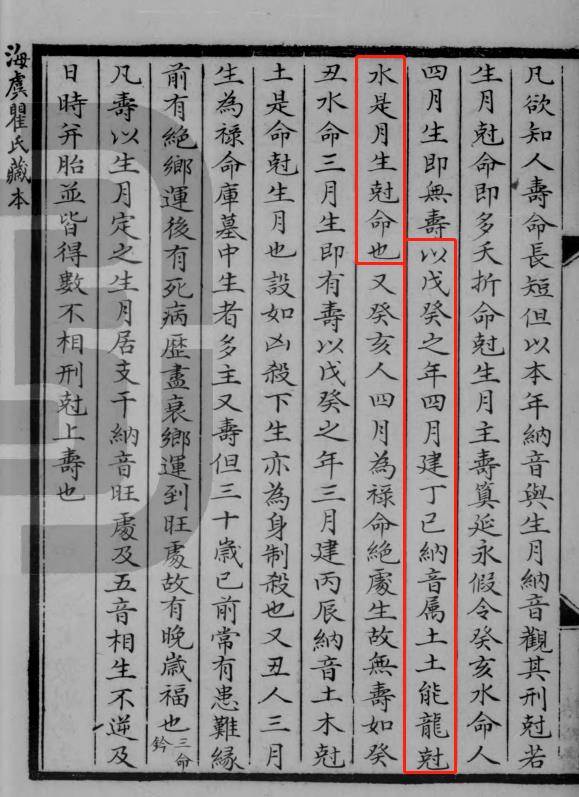 凡欲知人壽命長短但以本年納音與生月納音觀其刑尅若
生月尅命即多夭折命尅生月主壽筭延永假令癸亥水命人
四月生即無壽以戊癸之年四月建丁巳納音属土土能龍尅
水是月生尅命也又癸亥人四月為禄命絶處生故無壽如癸
丑水命三月生即有壽以戊癸之年三月建丙辰納音土木尅
土是命尅生月也設如凶殺下生亦為身制殺也又丑人三月
生為禄命庫墓中生者多主又壽但三十歲已前常有患難縁
前有絶鄉運後有死病歷盡衰鄉運到旺處故有晚歲福也三命鈐
凡壽以生月定之生月居支干納音旺處及五音相生不逆及
日時并胎並皆得數不相刑尅上壽也
海虞瞿氏藏本